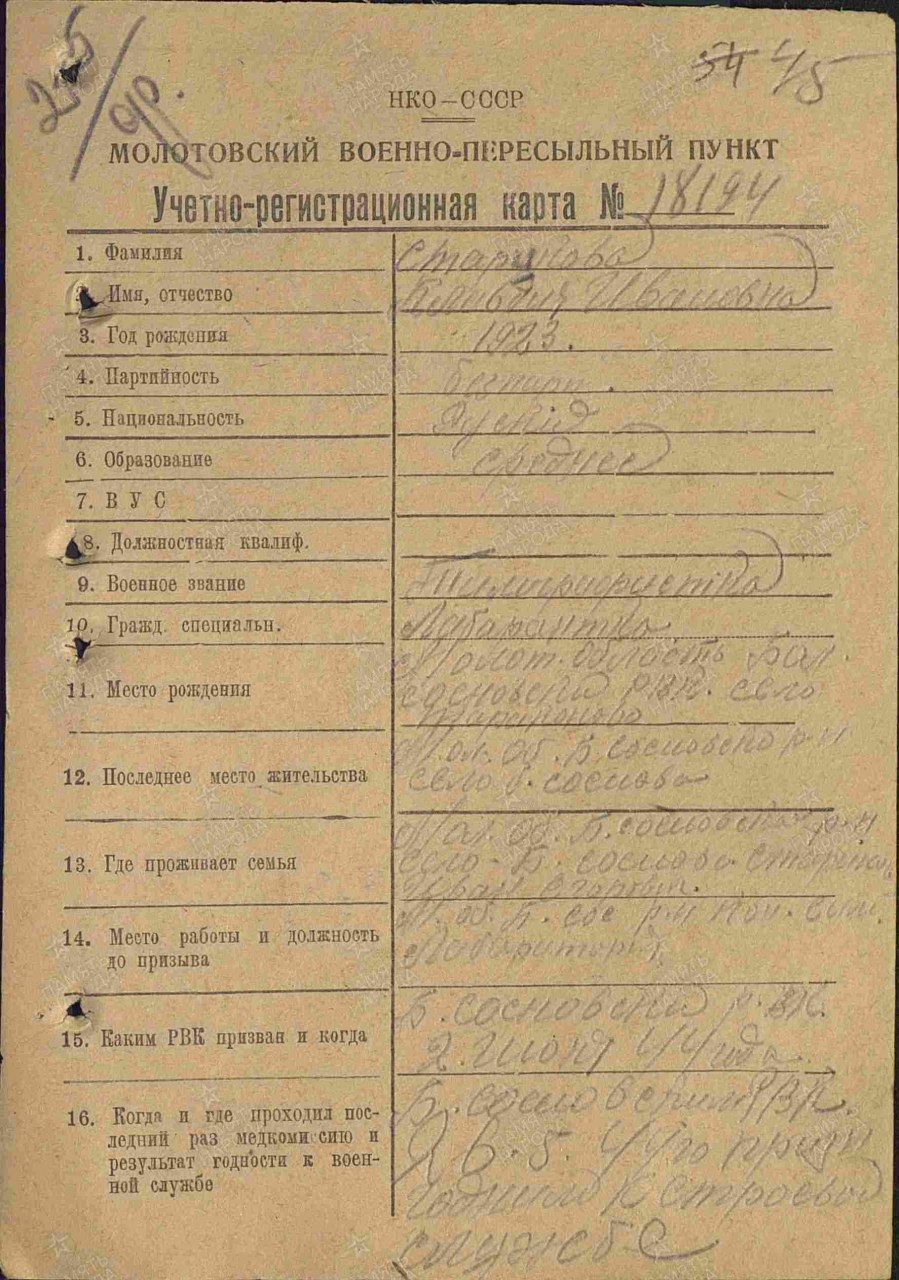 25/др.
54 45
НКО-СССР
МОЛОТОВСКИЙ ВОЕННО-ПЕРЕСЫЛЬНЫЙ ПУНКТ
Учетно-регистрационная карта № 18194
1. Фамилия Старикова
2. Имя, отчество Клавдия Ивановна
3. Год рождения 1923.
4. Партийность беспарт.
5. Национальность Руский
6. Образование среднее
7. ВУС
8. Должностная квалиф.
9. Военное звание
10. Гражд. специальн. Лабарантка
11. Место рождения Молот. область Бол.
сосновский РВК. село
12. Последнее место жительства Мол. об. Б. сосновского р-н
село б. соснова
13. Где проживает семья Мол. об. Б. сосновский р-н
село - Б. соснова Стариков
Иван
14. Место работы и должность
до призыва М. об. Б. сос р-н
Лабараторий
15. Каким РВК призван и когда Б. сосновский р. ВК.
2. Июня 44 года
16. Когда и где проходил пос-
ледний раз медкомиссию и
результат годности к воен-
ной службе Б. сосновским РВК.
26.5.44го
к строевой
службе